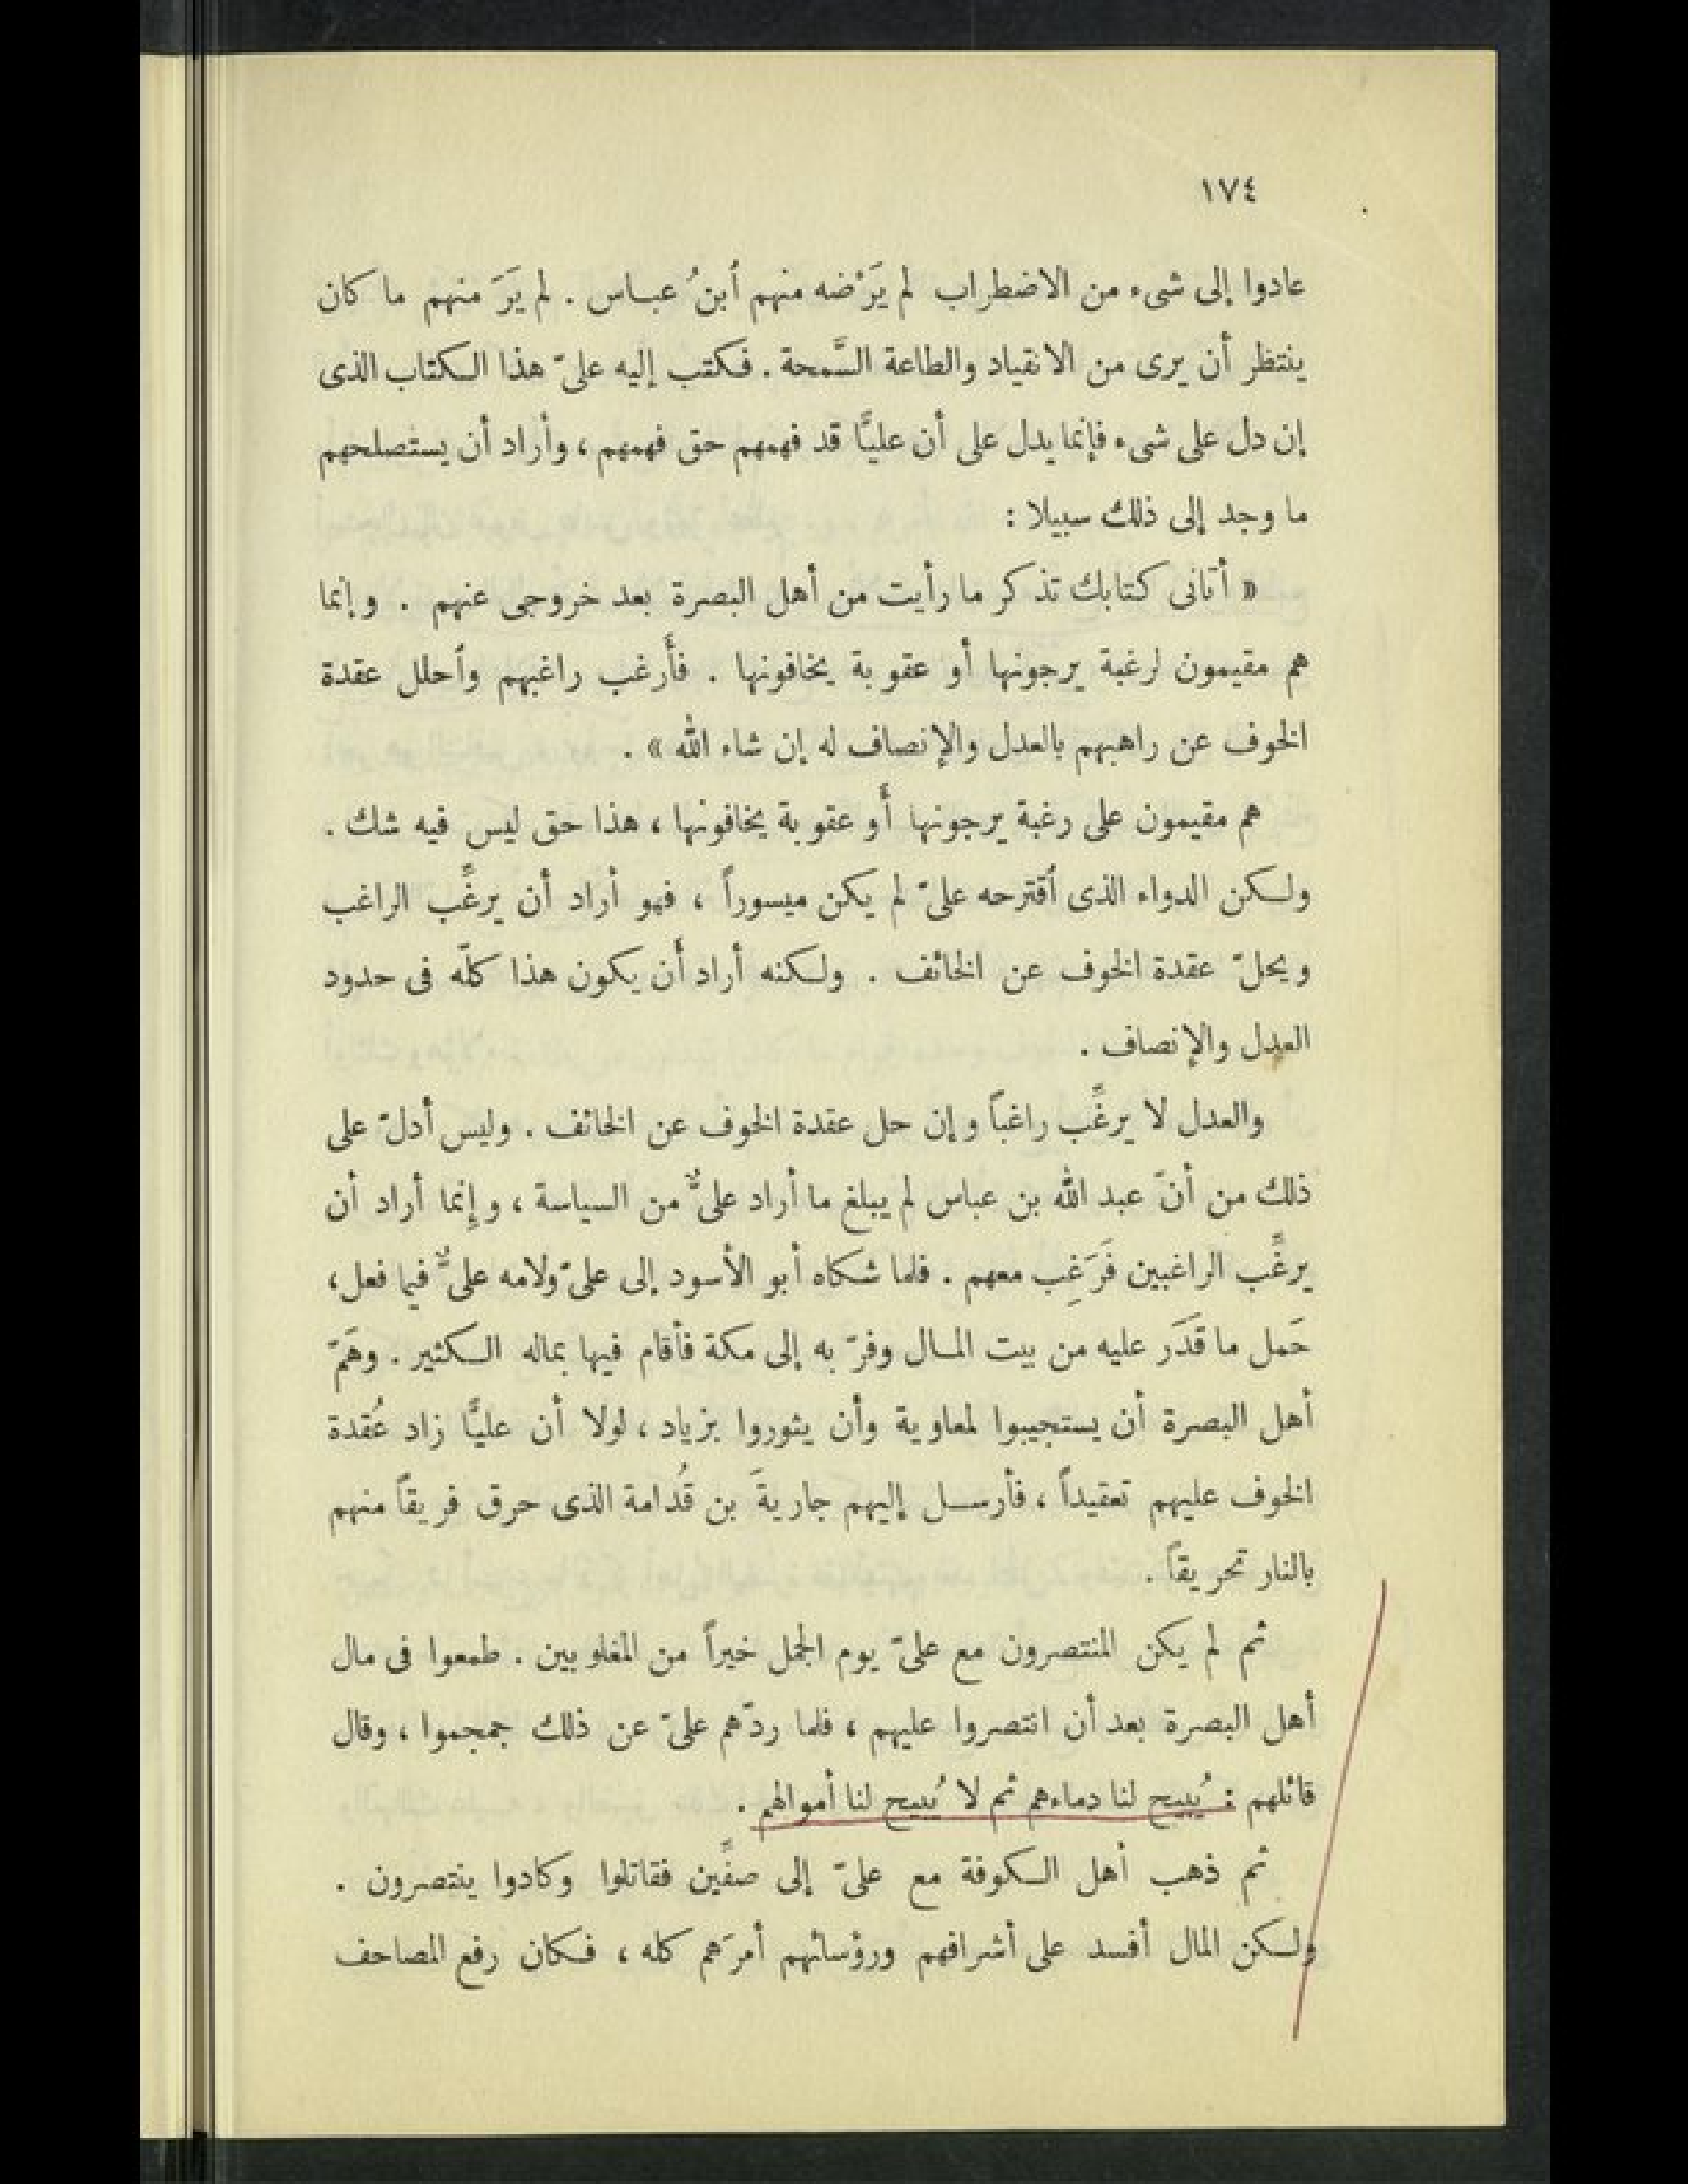 ١٧٤
عادوا إلى شىء من الاضطراب لم يَرْضه منهم ٱبنُ عباس . لم يَرَ منهم ما كان
ينتظر أن يرى من الانقياد والطاعة السَّمحة . فكتب إليه علىّ هذا الكتاب الذى
إن دل على شىء فإنما يدل على أن عليًّا قد فهمهم حق فهمهم ، وأراد أن يستصلحهم
ما وجد إلى ذلك سبيلا :
« أتانى كتابك تذكر ما رأيت من أهل البصرة بعد خروجى عنهم . وإنما
هم مقيمون لرغبة يرجونها أو عقوبة يخافونها . فأَرغب راغبهم وٱحلل عقدة
الخوف عن راهبهم بالعدل والإنصاف له إن شاء الله » .
هم مقيمون على رغبة يرجونها أَو عقوبة يخافونها ، هذا حق ليس فيه شك .
ولكن الدواء الذى ٱقترحه علىّ لم يكن ميسوراً ، فهو أراد أن يرغِّب الراغب
ويحلّ عقدة الخوف عن الخائف . ولكنه أراد أَن يكون هذا كلّه فى حدود
العدل والإنصاف .
والعدل لا يرغِّب راغباً وإن حل عقدة الخوف عن الخائف . وليس أدلّ على
ذلك من أنّ عبد الله بن عباس لم يبلغ ما أراد علىٌّ من السياسة ، وإِنما أراد أن
يرغِّب الراغبين فَرَغِب معهم . فلما شكاه أبو الأسود إلى علىّ ولامه علىٌّ فيما فعل ،
حَمل ما قَدَر عليه من بيت المال وفرّ به إلى مكة فأقام فيها بماله الكثير . وهَمّ
أهل البصرة أن يستجيبوا لمعاوية وأن يثوروا بزياد ، لولا أن عليًّا زاد عُقدة
الخوف عليهم تعقيداً ، فأرسل إليهم جاريةَ بن قُدامة الذى حرق فريقاً منهم
بالنار تحريقاً .
ثم لم يكن المنتصرون مع علىّ يوم الجمل خيراً من المغلوبين . طمعوا فى مال
أهل البصرة بعد أن انتصروا عليهم ، فلما ردّهم علىّ عن ذلك جمجموا ، وقال
قائلهم : يُبيح لنا دماءهم ثم لا يُبيح لنا أموالهم .
ثم ذهب أهل الكوفة مع علىّ إلى صفِّين فقاتلوا وكادوا ينتصرون .
ولكن المال أفسد على أشرافهم ورؤسائهم أمرَهم كله ، فكان رفع المصاحف